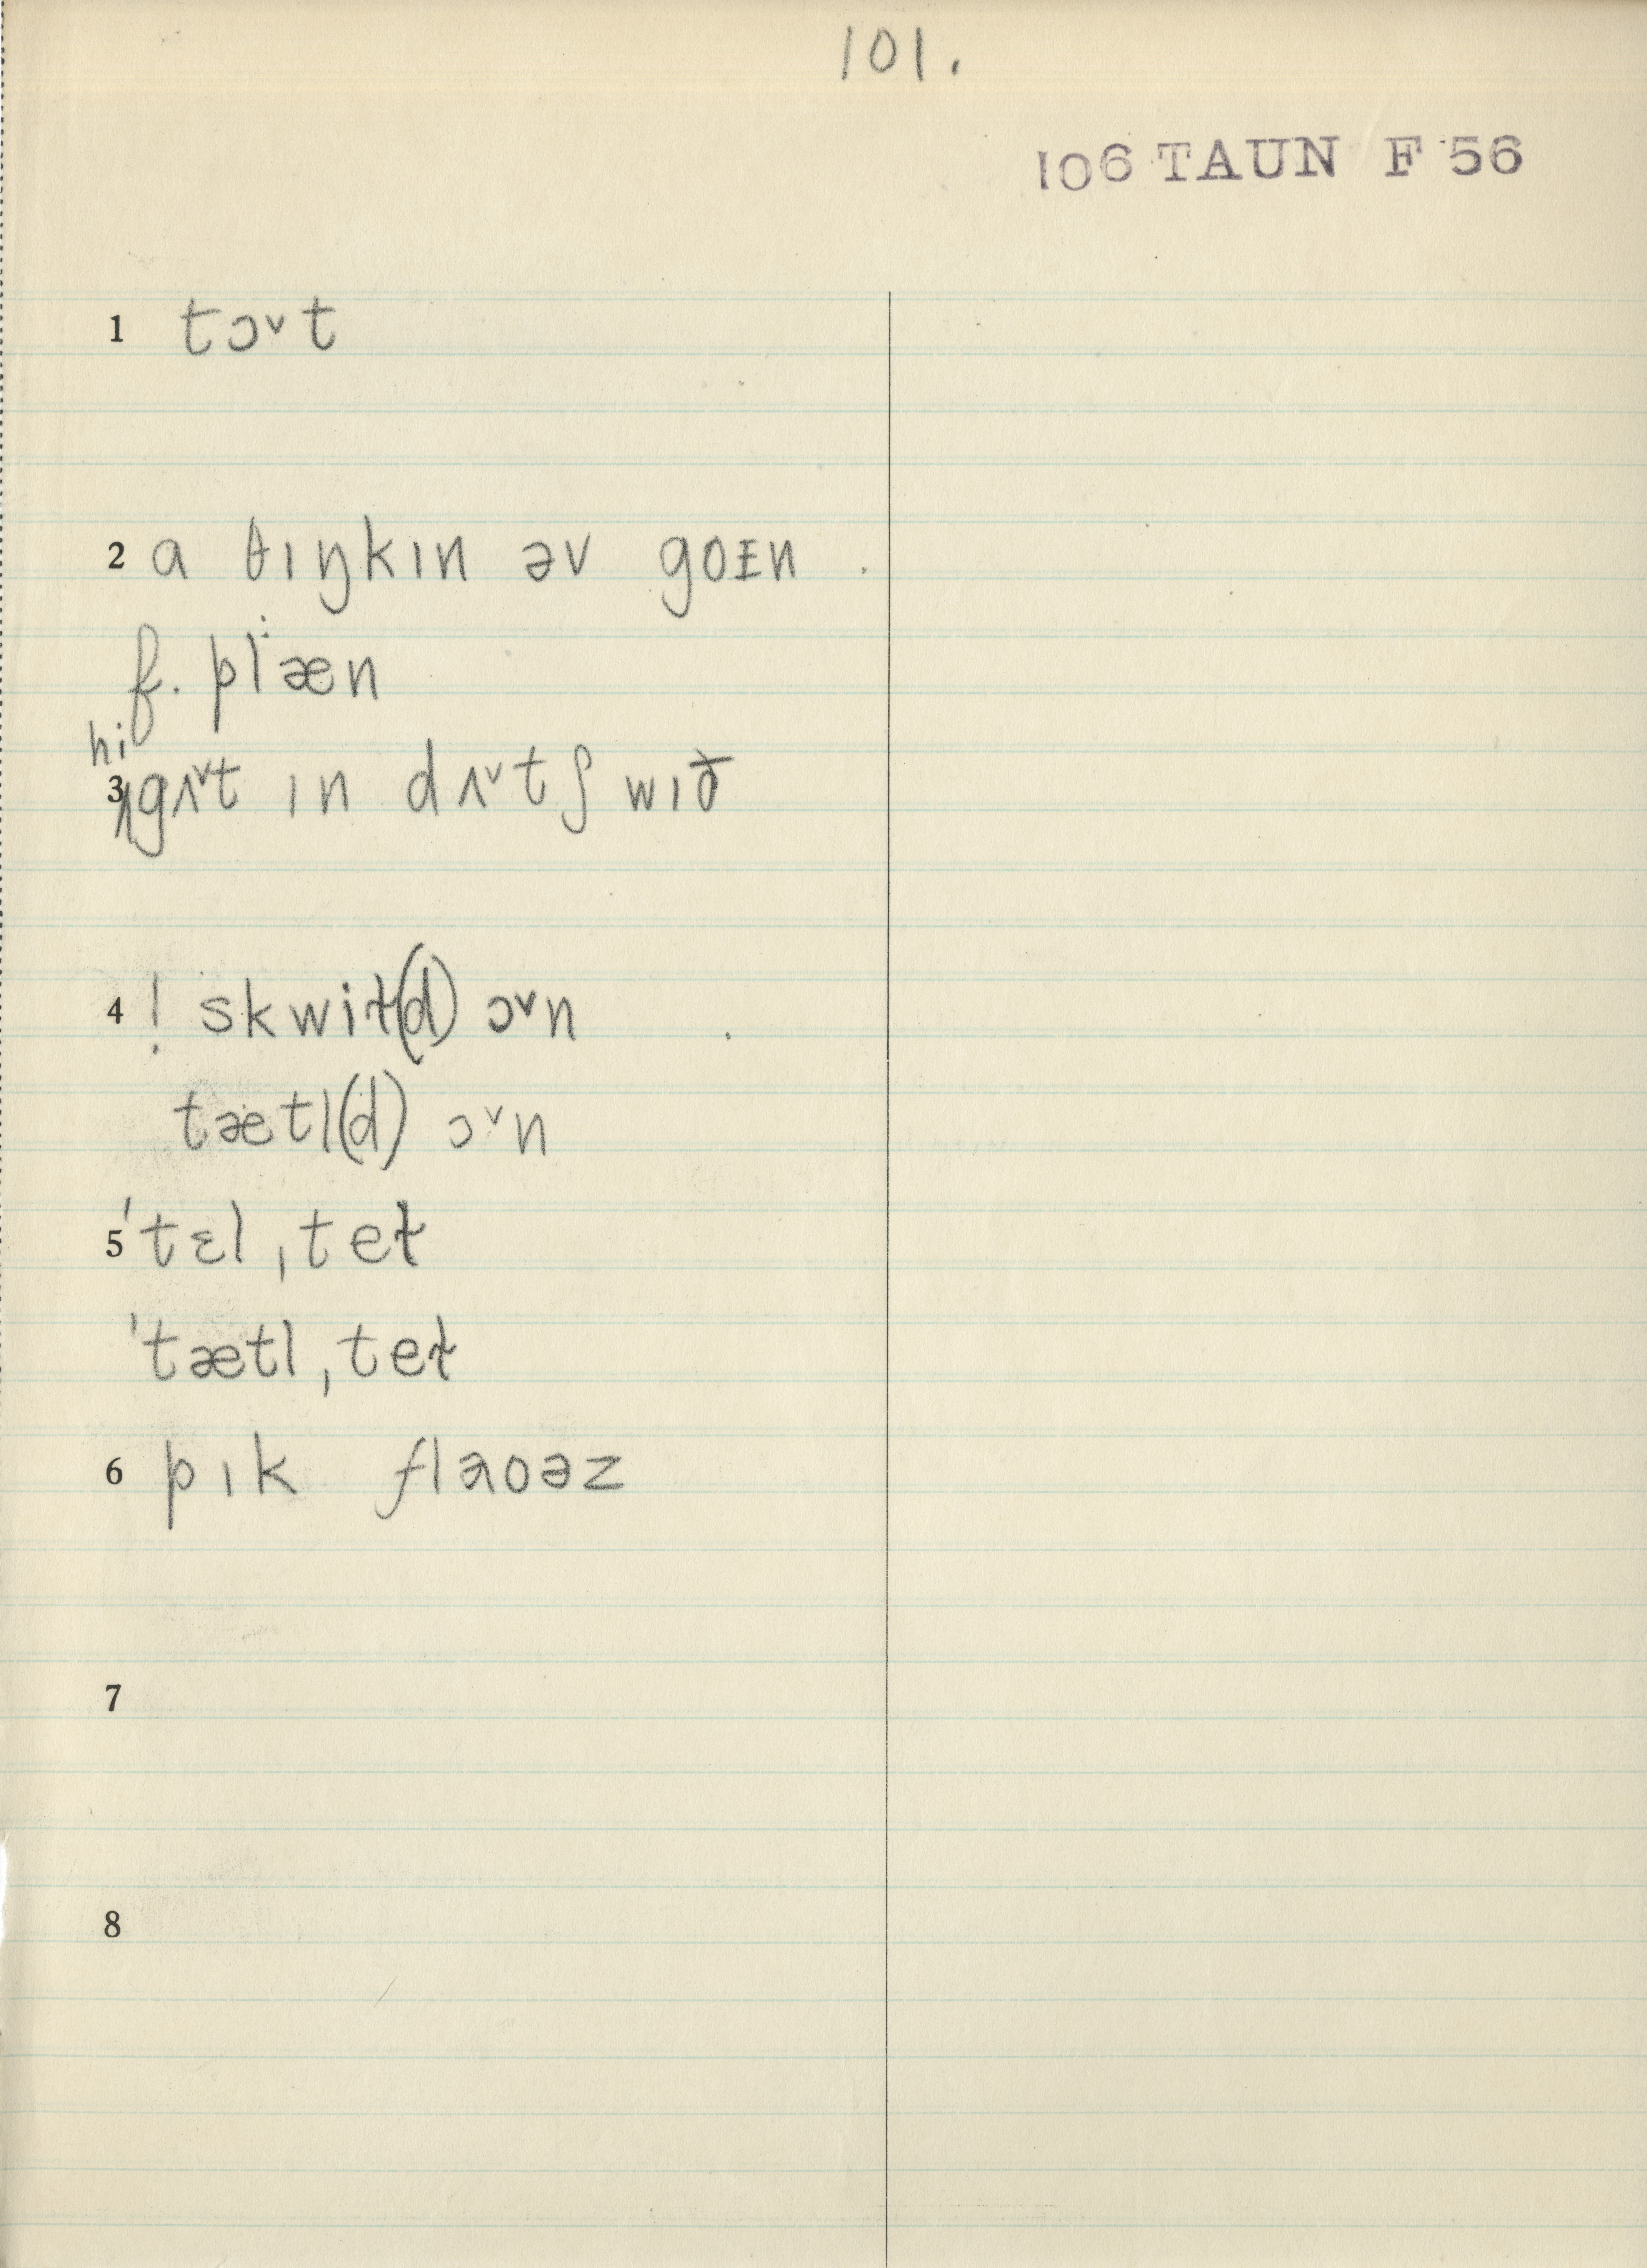 101.
106 TAUN F 56
1 tɔ˅t
2 a θɪŋkɪn əv goɪn
f. plæn
hi
3 ʌgʌ˅t ɪn dʌ˅tʃ wɪð
4 ! skwiɫ(d) ɔ˅n
tætl(d) ɔ˅n
5 ˈtɛl ˌteɫ
ˈtætl ˌteɫ
6 pɪk flaoəz
7
8